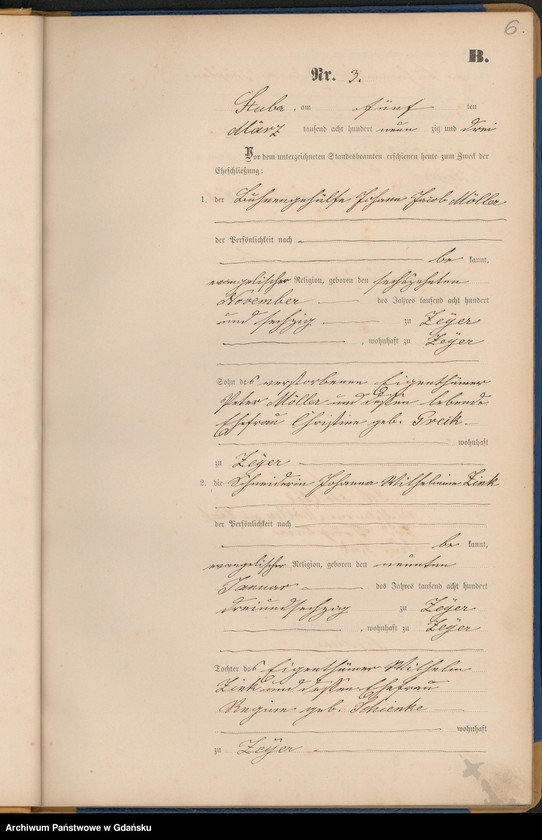 6.
B.
Nr. 3.
Stuba, am fünf ten
März tausend acht hundert neun zig und drei
Vor dem unterzeichneten Standesbeamten erschienen heute zum Zweck der
Eheschließung:
1. der Buhnengehülfe Johann Jacob Möller
der Persönlichkeit nach
be kannt,
evangelischer Religion, geboren den sechszehnten
November des Jahres tausend acht hundert
und sechzig zu Zeyer
, wohnhaft zu Zeyer
Sohn des verstorbenen Eigenthümer
Peter Möller und dessen lebende
Ehefrau Christine geb. Preik
wohnhaft
zu Zeyer
2. die Schneiderin Johanna Wilhelmine Zink
der Persönlichkeit nach
be kannt,
evangelischer Religion, geboren den neunten
Januar des Jahres tausend acht hundert
dreiundsechzig zu Zeyer
, wohnhaft zu Zeyer
Tochter des Eigenthümer Wilhelm
Zink und dessen Ehefrau
Regine geb. Schienke
wohnhaft
zu Zeyer
Archiwum Państwowe w Gdańsku